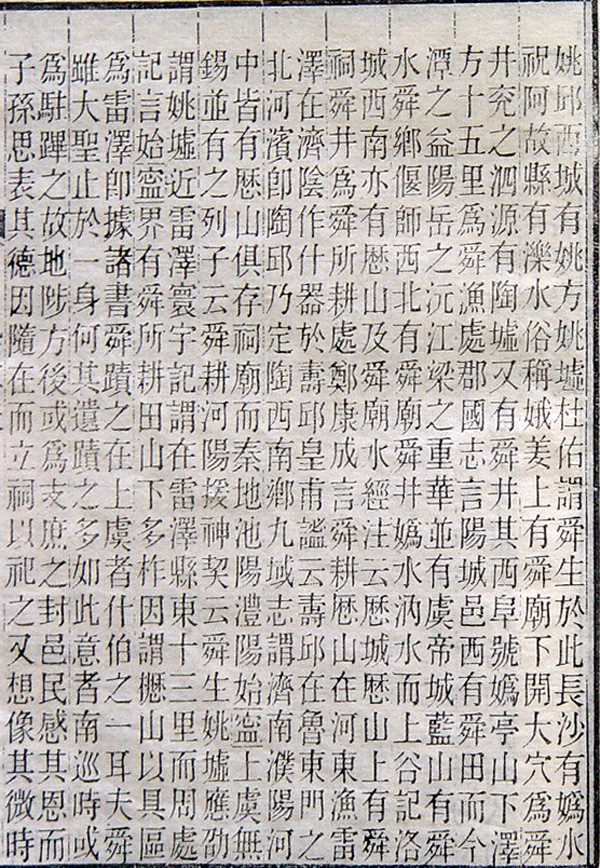 姚邱西城有姚方姚墟杜佑謂舜生於此長沙有嬀水
祝阿故縣有濼水俗稱娥姜上有舜廟下開大穴爲舜
井兖之泗源有陶墟又有舜井其西阜號嬀亭山下澤
方十五里爲舜漁處郡國志言陽城邑西有舜田而今
潭之益陽岳之沅江梁之重華並有虞帝城藍山有舜
水舜鄉偃師西北有舜廟舜井嬀水汭水而上谷記洛
城西南亦有歷山及舜廟水經注云歷城歷山上有舜
祠舜井爲舜所耕處鄭康成言舜耕歷山在河東漁雷
澤在濟陰作什器於壽邱皇甫謐云壽邱在魯東門之
北河濱卽陶邱乃定陶西南鄉九域志謂濟南濮陽河
中皆有歷山俱存祠廟而秦地池陽澧陽始寍上虞無
錫並有之列子云舜耕河陽援神契云舜生姚墟應劭
謂姚墟近雷澤寰宇記謂在雷澤縣東十三里而周處
記言始寍界有舜所耕田山下多柞因謂櫪山以具區
爲雷澤卽據諸書舜蹟之在上虞者什伯之一耳夫舜
雖大聖止於一身何其遺蹟之多如此意者南巡時或
爲駐蹕之故地陟方後或爲支庶之封邑民感其恩而
子孫思表其德因隨在而立祠以祀之又想像其微時